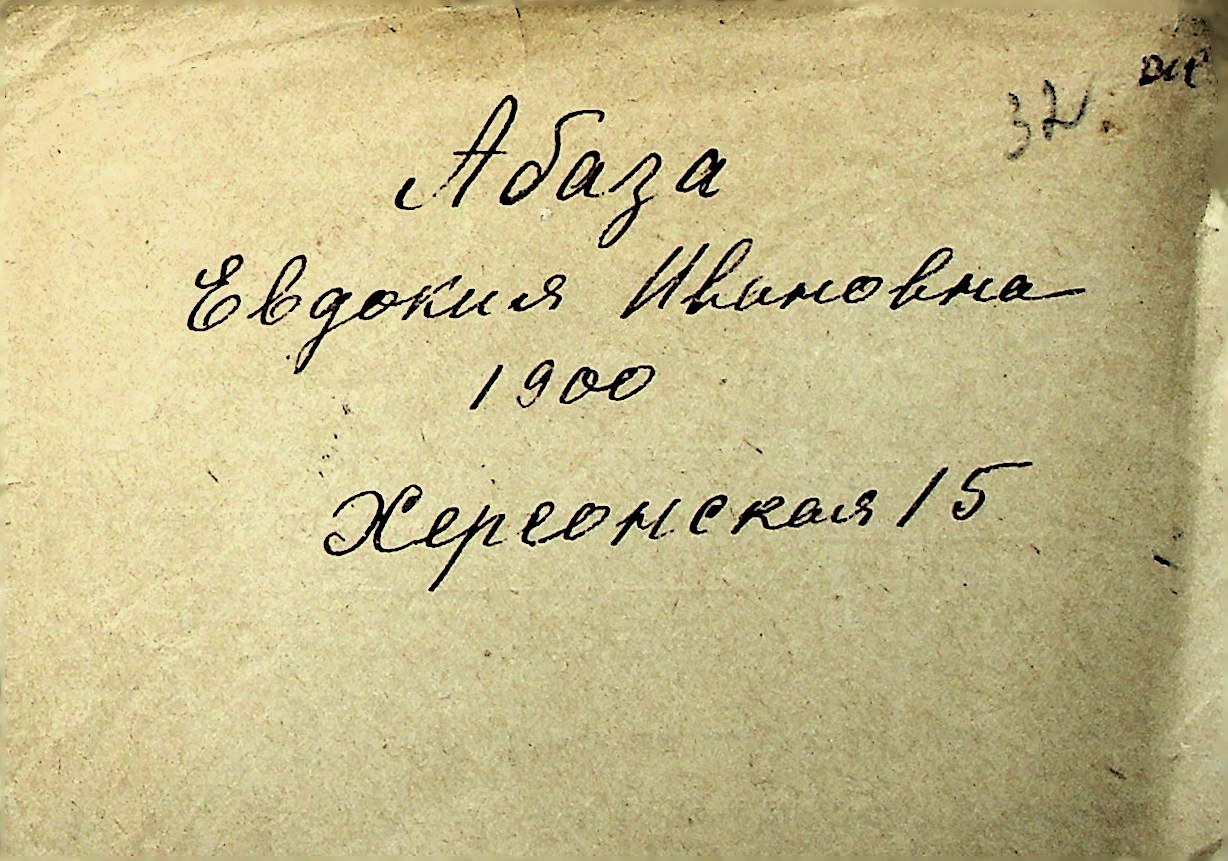 32
Абаза
Евдокия Ивановна
1900
Херсонская 15